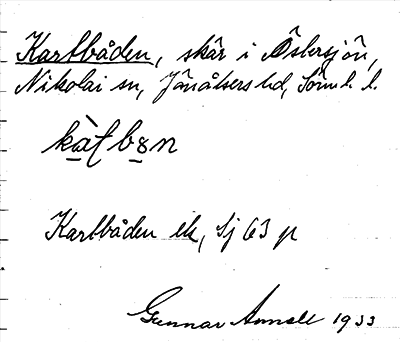 Kartbåden, skär i Östersjön,
Nikolai sn, Jönåkers hd, Söml. l.
Kartbåden ek, Sj 63 p
Gunnar Annell 1933